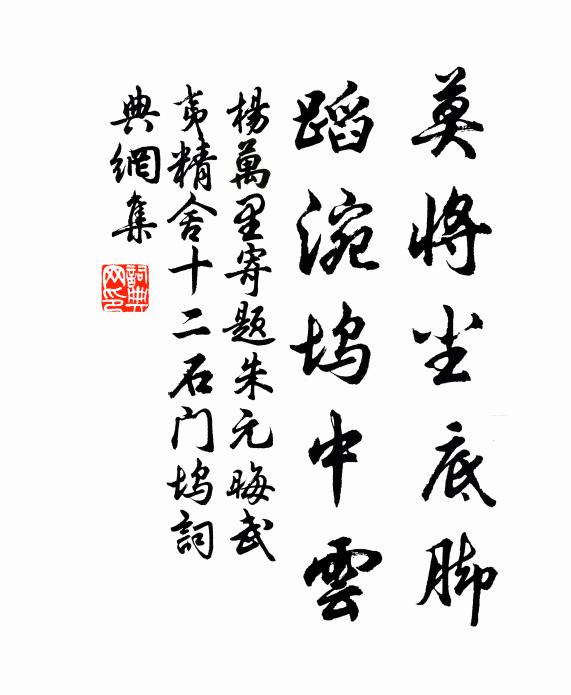 莫将尘底脚
蹈涴坞中雲
楊萬里寄题朱元晦武
夷精舍十二石门坞詞
典網集
詞典网印